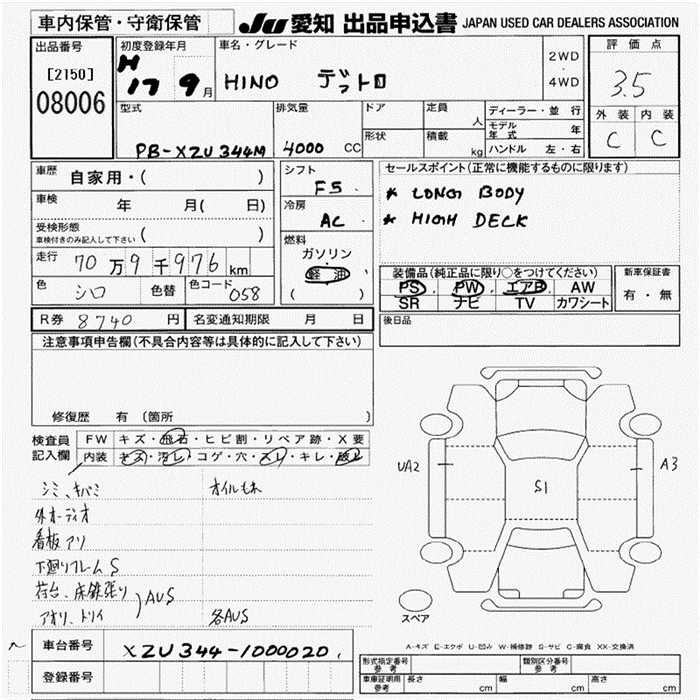 車内保管・守衛保管
JU 愛知 出品申込書 JAPAN USED CAR DEALERS ASSOCIATION
出品番号
[2150]
08006
初度登録年月
H 17 9月
車名・グレード
HINO デュトロ
2WD
・
4WD
評価点
3.5
外装 内装
C C
型式
PB-XZU344M
排気量
4000 CC
ドア
形状
定員
人
積載
kg
ディーラー・並 行
モデル年式 年
ハンドル 左・右
車歴
自家用・( )
車検 年 月( 日)
受検形態
車検付きのみ記入して下さい ( )
走行 70万9千976km
色 シロ 色替 色コード 058
シフト
F5
冷房
AC
燃料
ガソリン
軽油
( )
セールスポイント(正常に機能するものに限ります)
* LONG BODY
* HIGH DECK
装備品(純正品に限り○をつけてください)
PS PW エアB AW
SR ナビ TV カワシート
新車保証書
有・無
R券 8740 円 名変通知期限 月 日
後日品
注意事項申告欄(不具合内容等は具体的に記入して下さい)
修復歴 有 (箇所 )
検査員
記入欄
FW キズ・飛石・ヒビ割・リペア跡・X要
内装 キズ・汚レ・コゲ・穴・スレ・キレ・破レ
シミ、キバミ オイルもれ
外オーディオ
看板アリ
下廻リフレームS
荷台、床鉄張り
アオリ、トリイ
AUS
各AUS
UA2
A3
S1
スペア
A-キズ E-エクボ U-凹み W-補修跡 S-サビ C-腐食 XX-交換済
車台番号 XZU344-1000020
登録番号
形式指定番号
参考
類別区分番号
参考
車庫証明用
参考
長さ cm 幅 cm 高さ cm